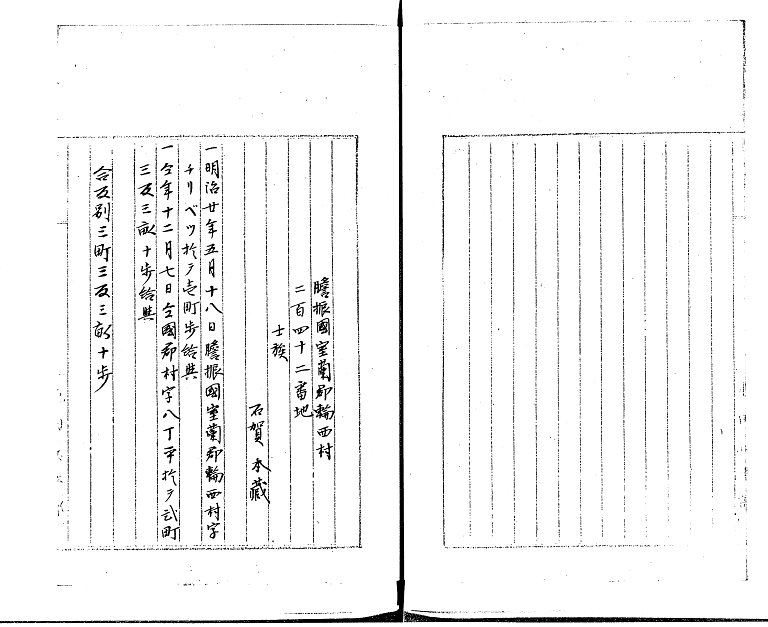 膽振國室蘭郡輪西村
二百四十二番地
士族
石賀本藏
一明治廿年五月十八日膽振國室蘭郡輪西村字
チリベツ於テ壱町歩給與
一仝年十二月七日仝國郡村字八丁平於テ弍町
三反三畝十歩給與
合反別三町三反三畝十歩